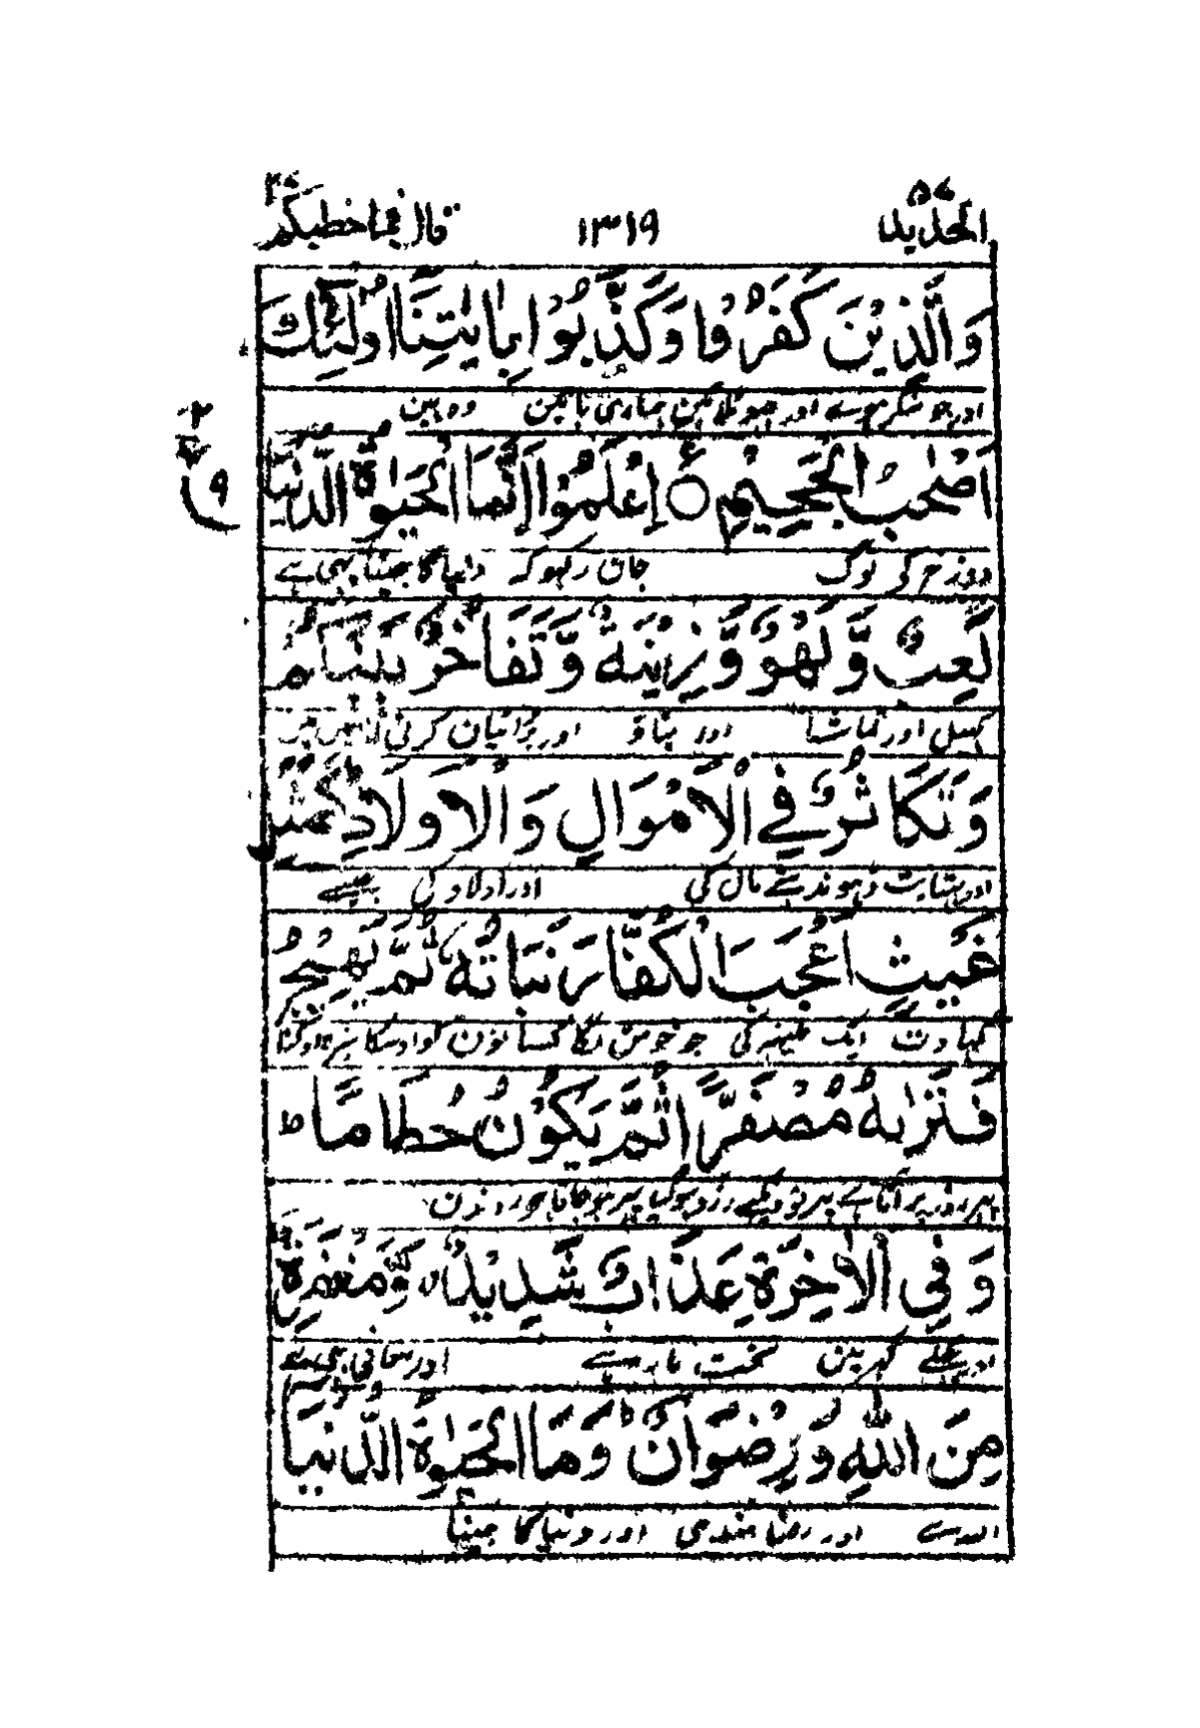 الحديد ۵۷ ۱۳۱۹ قال فما خطبكم ۲۷
وَالَّذِيْنَ كَفَرُوْا وَكَذَّبُوْا بِاٰيٰتِنَا اُولٰٓئِكَ
اور جو منکر ہوے اور جھوٹلائین ہماری باتین وہ ہین
اَصْحٰبُ الْجَحِيْمِ ○ ع اِعْلَمُوْا اَنَّمَا الْحَيٰوةُ الدُّنْيَا
۲ ع ۹
دوزخ کی لوگ جان رکہو کہ دنیا کا جینا یہی ہے
لَعِبٌ وَّلَهْوٌ وَّزِيْنَةٌ وَّتَفَاخُرٌۢ بَيْنَكُمْ
کہیل اور تماشا اور بناؤ اور بڑائیان کرنی آپسمین
وَتَكَاثُرٌ فِي الْاَمْوَالِ وَالْاَوْلَادِ كَمَثَلِ
اور بہتایت ڈہونڈنے مال کی اور اولاد کی جیسے
غَيْثٍ اَعْجَبَ الْكُفَّارَ نَبَاتُهٗ ثُمَّ يَهِيْجُ
کہاوت ایک مینہ کی جو خوش لگا کسانون کو اوسکا سبزہ اوگنا
فَتَرٰىهُ مُصْفَرًّا ثُمَّ يَكُوْنُ حُطَامًا ط
پہر زور پر آتا ہے پہر تو دیکھے زرد ہو گیا پہر ہو جاتا ہے روندن
وَفِي الْاٰخِرَةِ عَذَابٌ شَدِيْدٌ ۙ وَّمَغْفِرَةٌ
اور پچھلے گہر مین سخت مار ہے اور معافی بہی ہے
مِّنَ اللّٰهِ وَرِضْوَانٌ ط وَمَا الْحَيٰوةُ الدُّنْيَا
اللہ سے اور رضامندی اور دنیا کا جینا